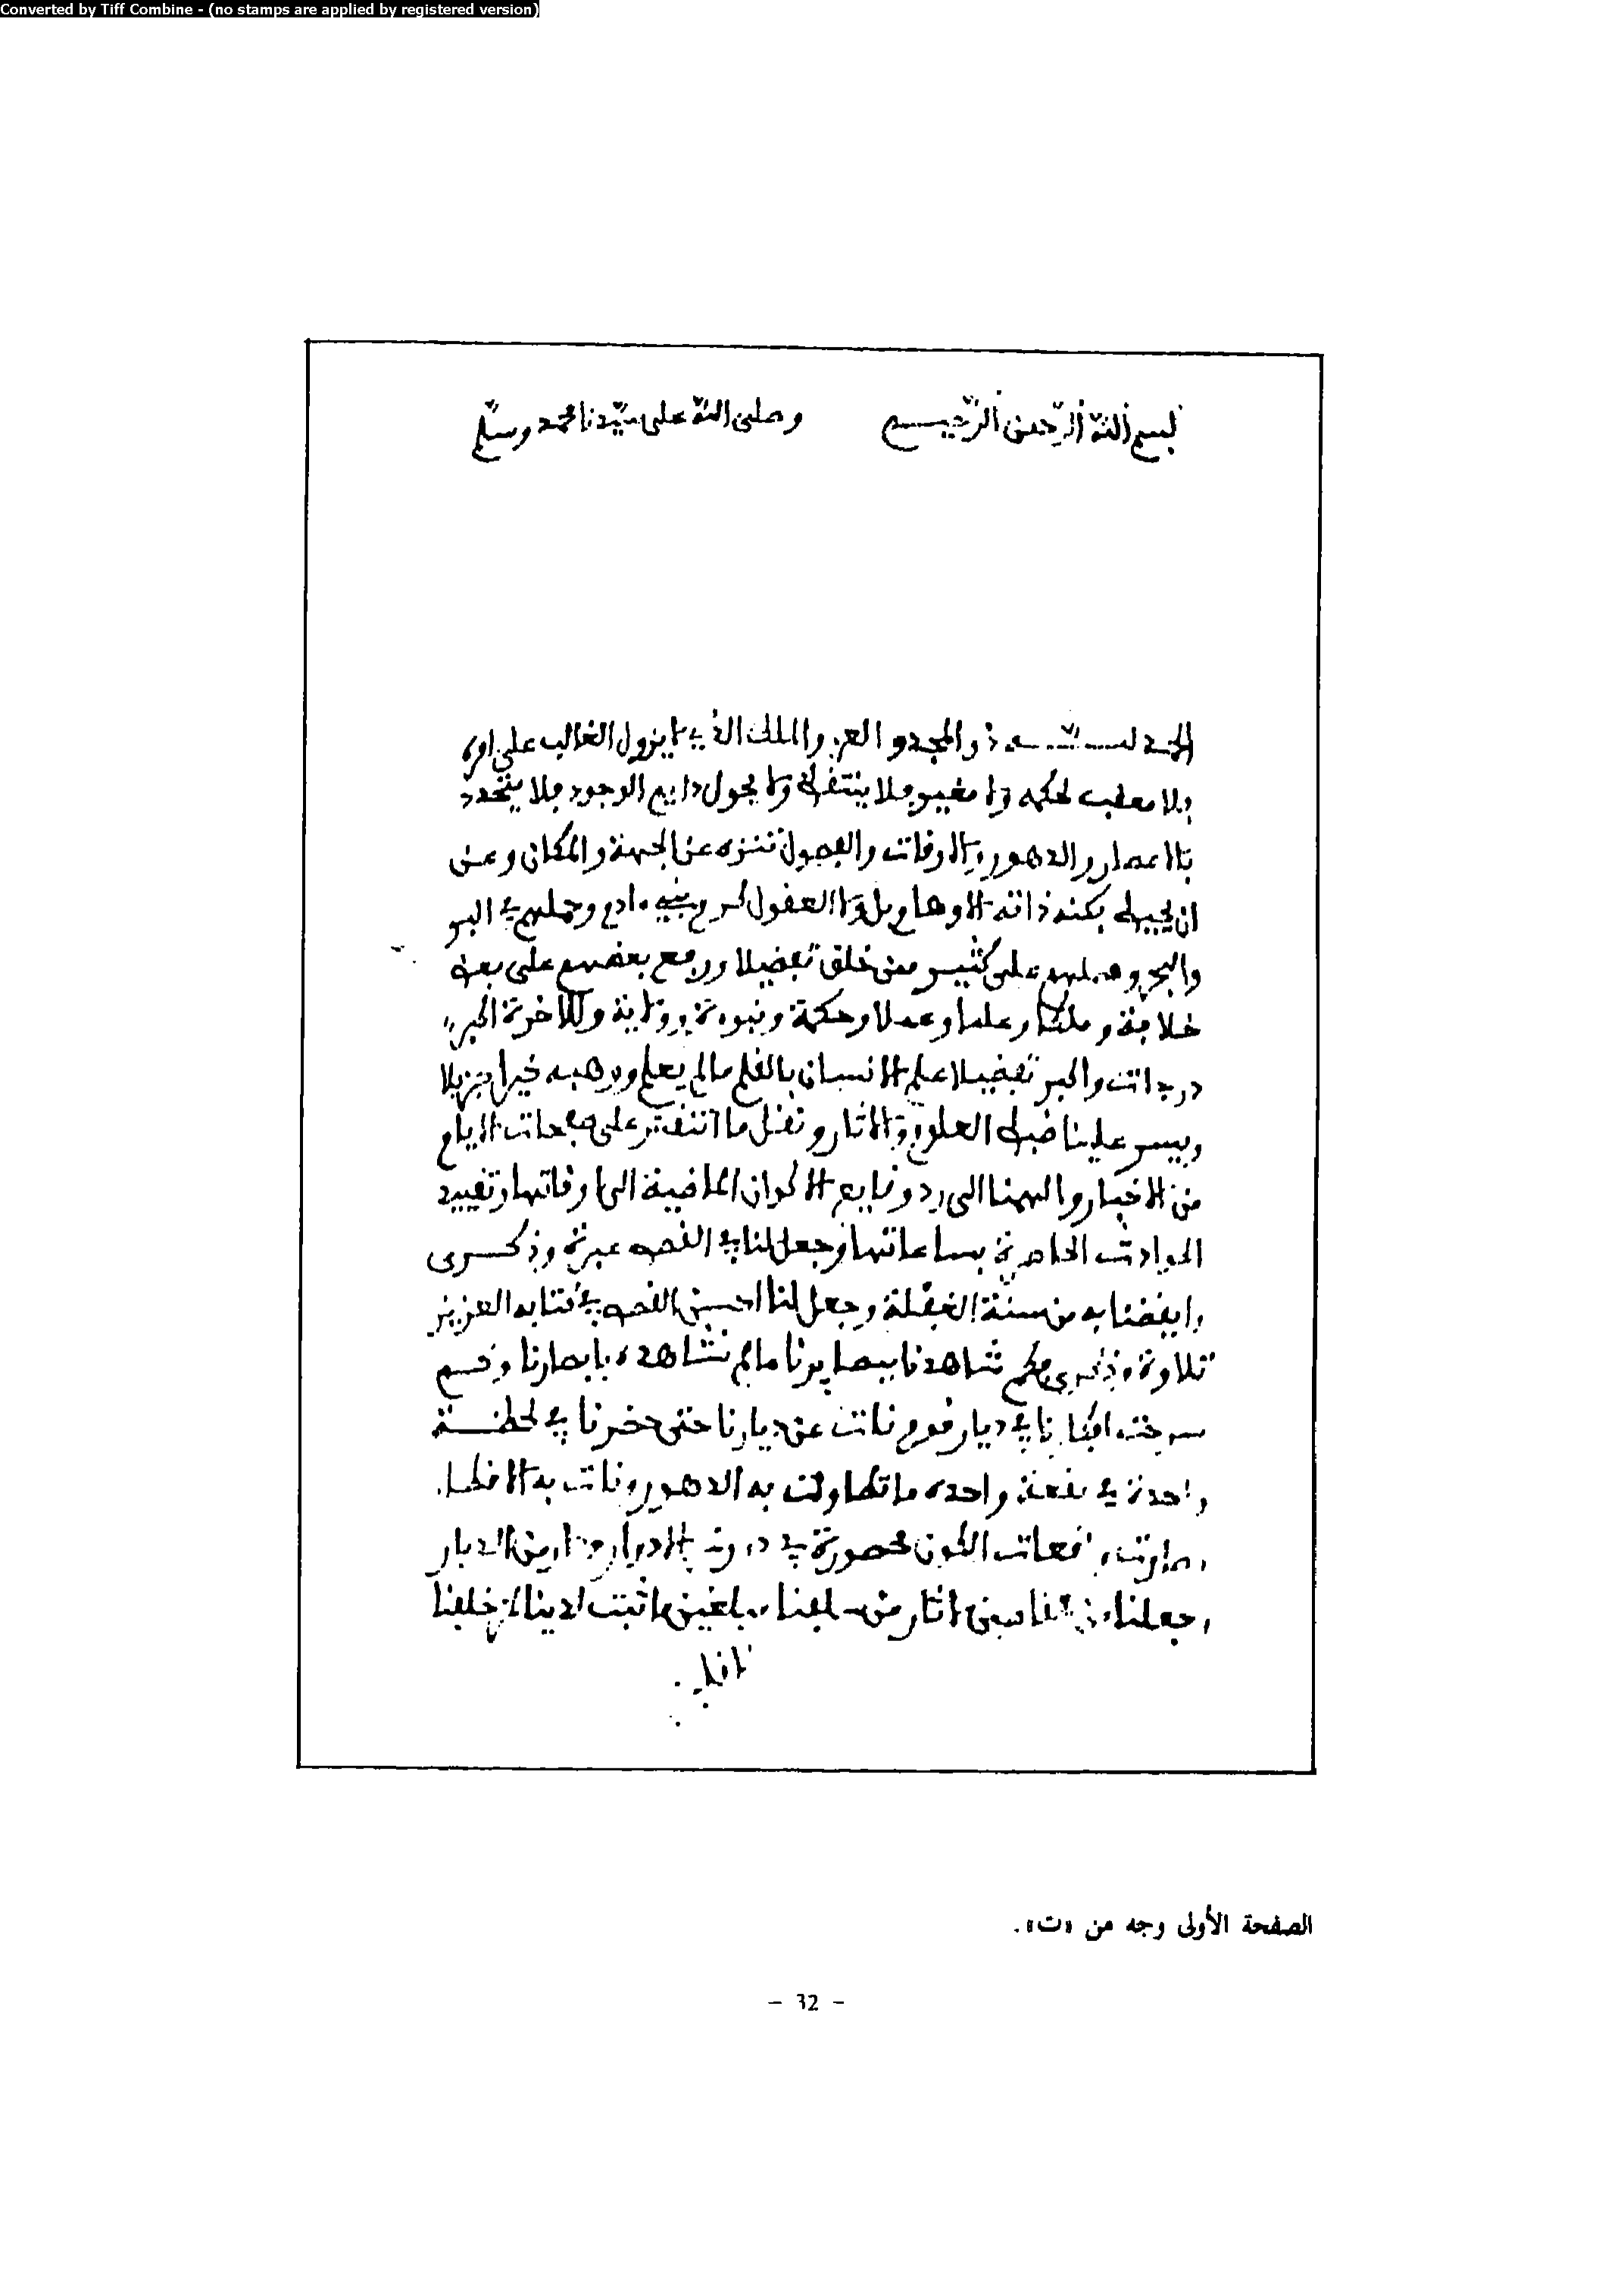 Converted by Tiff Combine - (no stamps are applied by registered version)
بسم الله الرحمن الرحيم وصلى الله على سيدنا محمد وسلم
الحمد لله ذو المجد والعز والملك الذي لا يزول الغالب على امره
فلا معقب لحكمه ولا مغير فلا ينتقل ولا يحول دايم الوجود فلا يتحدد
بالاعصار والدهور والاوقات والفصول تنزه عن الجهة والمكان وعن
ان يحيط بكنه ذاته الاوهام والعقول كرم بني ءادم وحملهم في البر
والبحر وفضلهم على كثير ممن خلق تفضيلا ورفع بعضهم على بعض
خلافة وملكا وعلما وعدلا وحكمة ونبوءة وولاية وللاخرة اكبر
درجات واكبر تفضيلا علم الانسان بالقلم ما لم يعلم ووهبه خيرا جزيلا
ويسر علينا ضبط العلوم والاثار ونقل ما انتقش على صفحات الايام
من الاخبار والهمنا الى رد وقايع الاكوان الماضية الى اوقاتها وتقييد
الحوادث الحاضرة بساعاتها وجعل لنا في القصص عبرة وذكرى
وايقضنا به من سنة الغفلة وجعل لنا احسن القصص في كتابه العزيز
تلاوة وذكرى فكم شاهدنا ببصايرنا ما لم نشاهده بابصارنا وكم
سرحت افكارنا في ديار قوم نات عن ديارنا حتى حضرنا في لحظة
واحدة في بقعة واحده ما تطاولت به الدهور ونات به الاقطار
وصارت بقعات الكون محصورة في الديار
وجعلنا اثار من سلفنا لمن خلفنا
الصفحة الأولى وجه من «ت».
- 32 -